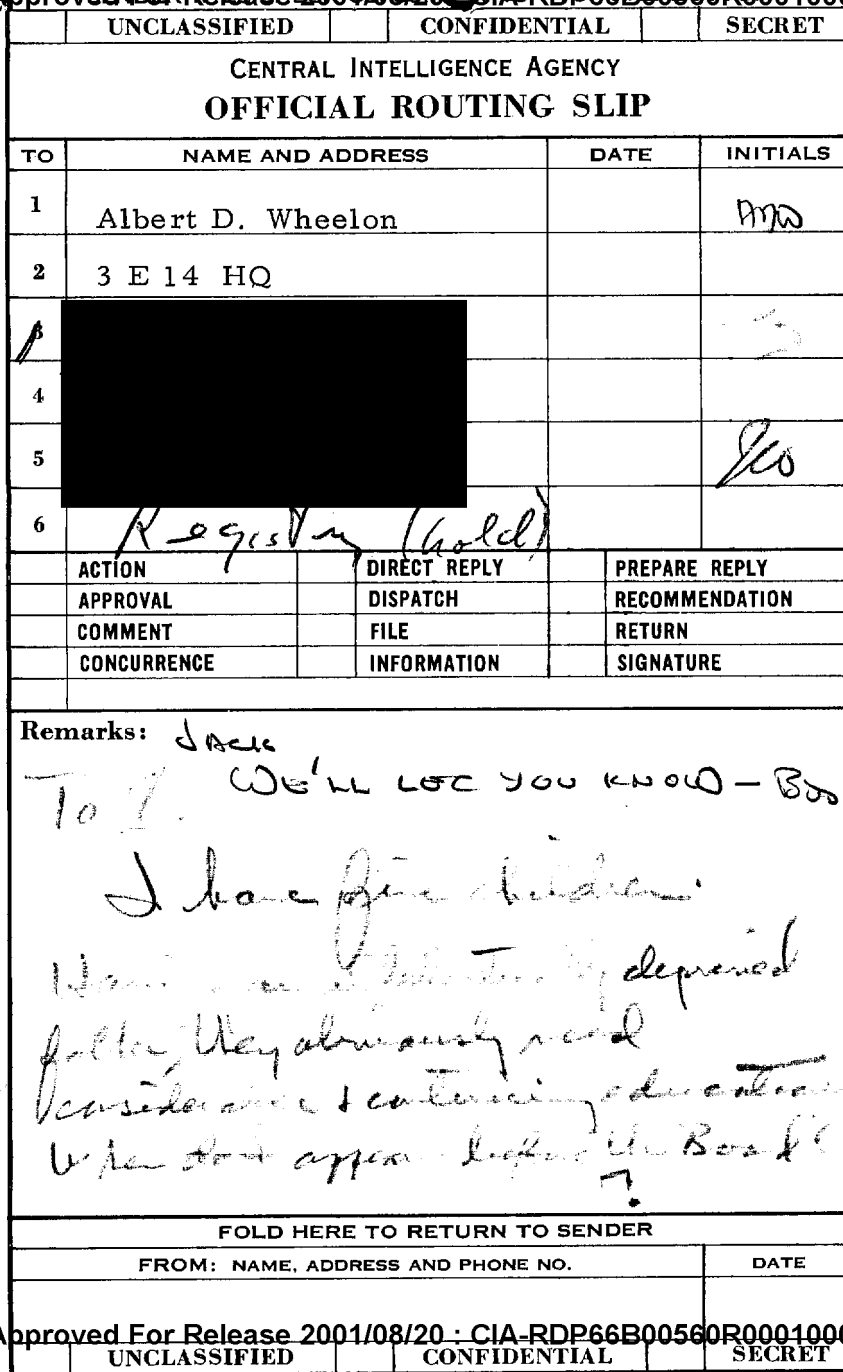 Approved For Release 2001/08/20 : CIA-RDP66B00560R0001000
UNCLASSIFIED CONFIDENTIAL SECRET
CENTRAL INTELLIGENCE AGENCY
OFFICIAL ROUTING SLIP
TO NAME AND ADDRESS DATE INITIALS
1 Albert D. Wheelon
2 3 E 14 HQ
3
4
5
6 Registry (hold)
ACTION DIRECT REPLY PREPARE REPLY
APPROVAL DISPATCH RECOMMENDATION
COMMENT FILE RETURN
CONCURRENCE INFORMATION SIGNATURE
Remarks: JACK
WE'LL LET YOU KNOW – BUD
To 1.
I have five children.
deprived
father, they obviously need
considerable & continuing education
When do I appear before the Board
?
FOLD HERE TO RETURN TO SENDER
FROM: NAME, ADDRESS AND PHONE NO. DATE
Approved For Release 2001/08/20 : CIA-RDP66B00560R0001000
UNCLASSIFIED CONFIDENTIAL SECRET